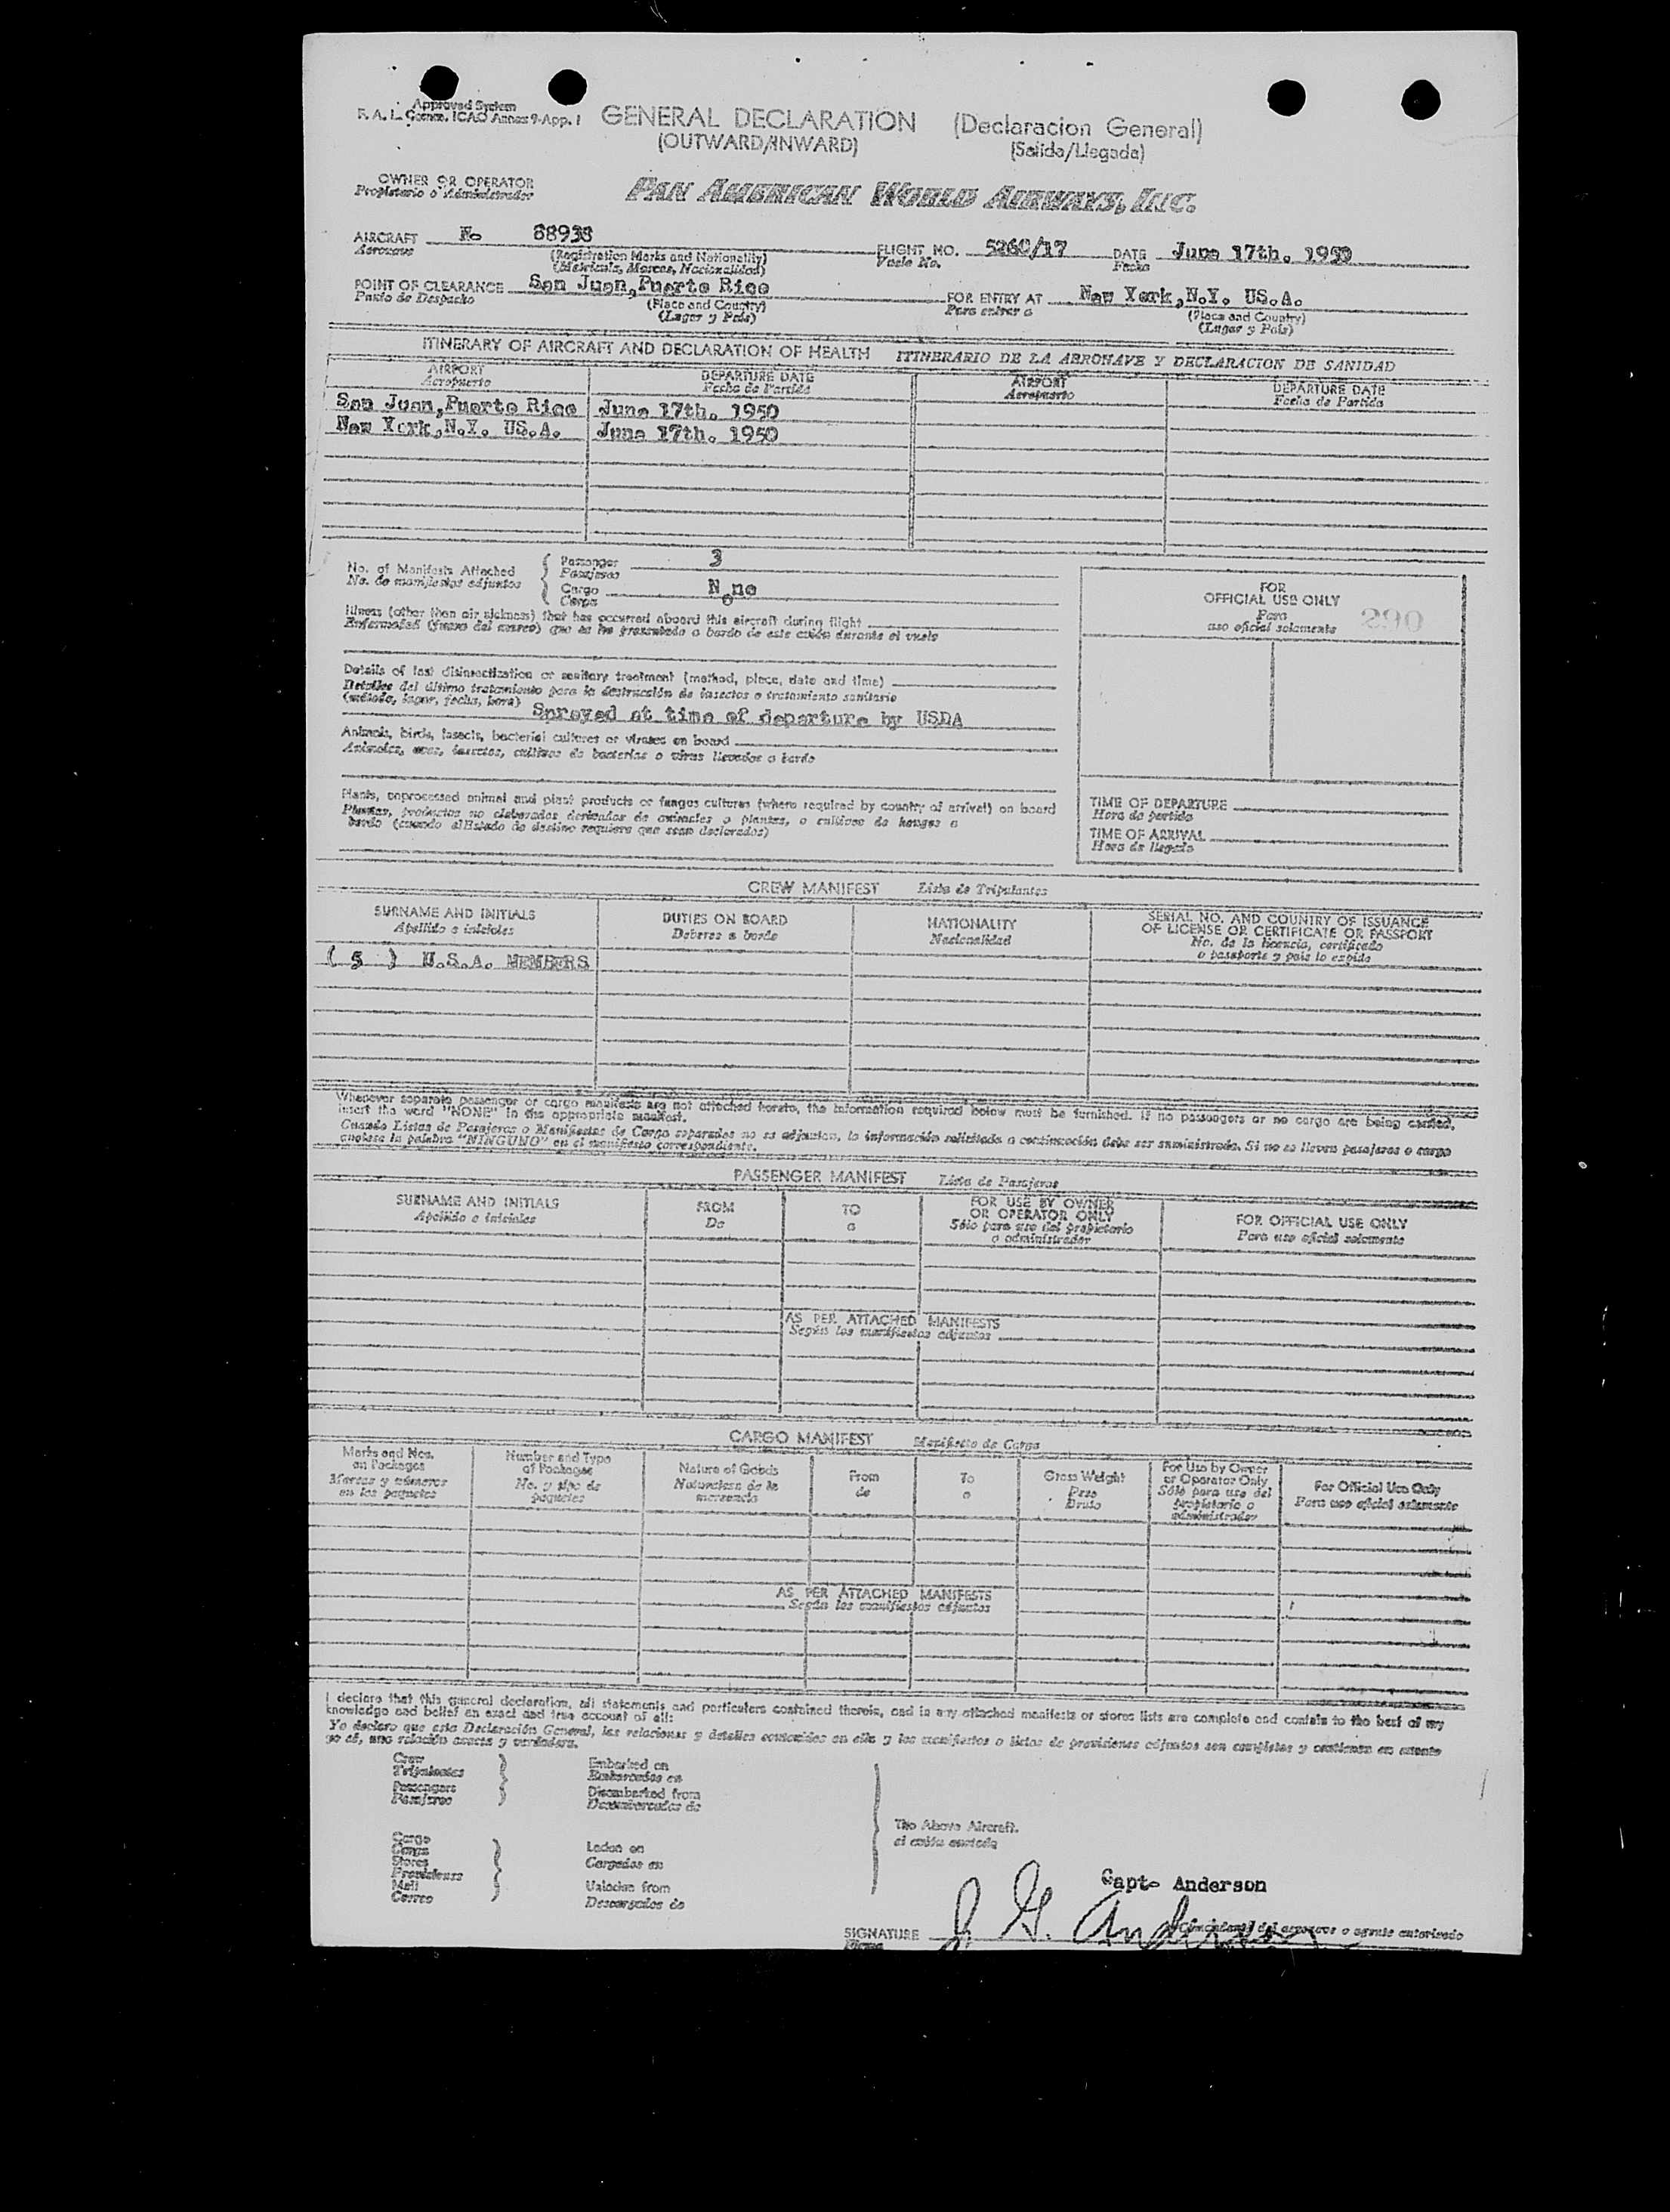 Approved System
F. A. L. Comm. ICAO Annex 9-App. 1
GENERAL DECLARATION (Declaracion General)
(OUTWARD/INWARD) (Salida/Llegada)
OWNER OR OPERATOR
Propietario o Administrador
PAN AMERICAN WORLD AIRWAYS, INC.
AIRCRAFT N- 88938 FLIGHT NO. 5260/17 DATE June 17th. 1950
Aeronave (Registration Marks and Nationality) Vuelo No. Fecha
(Matricula, Marcas, Nacionalidad)
POINT OF CLEARANCE San Juan,Puerto Rico FOR ENTRY AT New York,N.Y. US.A.
Punto de Despacho (Place and Country) Para entrar a (Place and Country)
(Lugar y País) (Lugar y País)
ITINERARY OF AIRCRAFT AND DECLARATION OF HEALTH ITINERARIO DE LA AERONAVE Y DECLARACION DE SANIDAD
AIRPORT DEPARTURE DATE AIRPORT DEPARTURE DATE
Aeropuerto Fecha de Partida Aeropuerto Fecha de Partida
San Juan,Puerto Rico June 17th. 1950
New York,N.Y. US.A. June 17th. 1950
No. of Manifests Attached
No. de manifiestos adjuntos
Passenger 3
Pasajeros
Cargo None
Carga
FOR
OFFICIAL USE ONLY
Para
uso oficial solamente
290
Illness (other than air sickness) that has occurred aboard this aircraft during flight
Enfermedad (fuera del mareo) que se ha presentado a bordo de este avión durante el vuelo
Details of last disinsectization or sanitary treatment (method, place, date and time)
Detalles del último tratamiento para la destrucción de insectos o tratamiento sanitario
(método, lugar, fecha, hora) Sprayed at time of departure by USDA
Animals, birds, insects, bacterial cultures or viruses on board
Animales, aves, insectos, cultivos de bacterias o virus llevados a bordo
Plants, unprocessed animal and plant products or fungus cultures (where required by country of arrival) on board
Plantas, productos no elaborados derivados de animales o plantas, o cultivos de hongos a
bordo (cuando el Estado de destino requiera que sean declarados)
TIME OF DEPARTURE
Hora de partida
TIME OF ARRIVAL
Hora de llegada
CREW MANIFEST Lista de Tripulantes
SURNAME AND INITIALS DUTIES ON BOARD NATIONALITY SERIAL NO. AND COUNTRY OF ISSUANCE
Apellido e iniciales Deberes a bordo Nacionalidad OF LICENSE OR CERTIFICATE OR PASSPORT
No. de la licencia, certificado
o pasaporte y país lo expide
( 5 ) U.S.A. MEMBERS
Whenever separate passenger or cargo manifests are not attached hereto, the information required below must be furnished. If no passengers or no cargo are being carried,
insert the word "NONE" in the appropriate manifest.
Cuando Listas de Pasajeros o Manifiestos de Carga separados no se adjuntan, la información solicitada a continuación debe ser suministrada. Si no se llevan pasajeros o carga
anótese la palabra "NINGUNO" en el manifiesto correspondiente.
PASSENGER MANIFEST Lista de Pasajeros
SURNAME AND INITIALS FROM TO FOR USE BY OWNER FOR OFFICIAL USE ONLY
Apellido e iniciales De a OR OPERATOR ONLY Para uso oficial solamente
Sólo para uso del propietario
o administrador
AS PER ATTACHED MANIFESTS
Según los manifiestos adjuntos
CARGO MANIFEST Manifiesto de Carga
Marks and Nos. on Packages
Marcas y números en los paquetes
Number and Type of Packages
No. y tipo de paquetes
Nature of Goods
Naturaleza de la mercancía
From
de
To
a
Gross Weight
Peso Bruto
For Use by Owner or Operator Only
Sólo para uso del propietario o administrador
For Official Use Only
Para uso oficial solamente
AS PER ATTACHED MANIFESTS
Según los manifiestos adjuntos
I declare that this general declaration, all statements and particulars contained therein, and in any attached manifests or stores lists are complete and contain to the best of my
knowledge and belief an exact and true account of all:
Yo declaro que esta Declaración General, las relaciones y detalles contenidos en ella y los manifiestos o listas de provisiones adjuntos son completos y contienen en cuanto
yo sé, una relación exacta y verdadera.
Crew
Tripulantes
Passengers
Pasajeros
Embarked on
Embarcados en
Disembarked from
Desembarcados de
Cargo
Carga
Stores
Provisiones
Mail
Correo
Laden on
Cargados en
Unladen from
Descargados de
The Above Aircraft.
el avión
Capt- Anderson
SIGNATURE J. G. Anderson
Firma
del aeronave o agente autorizado